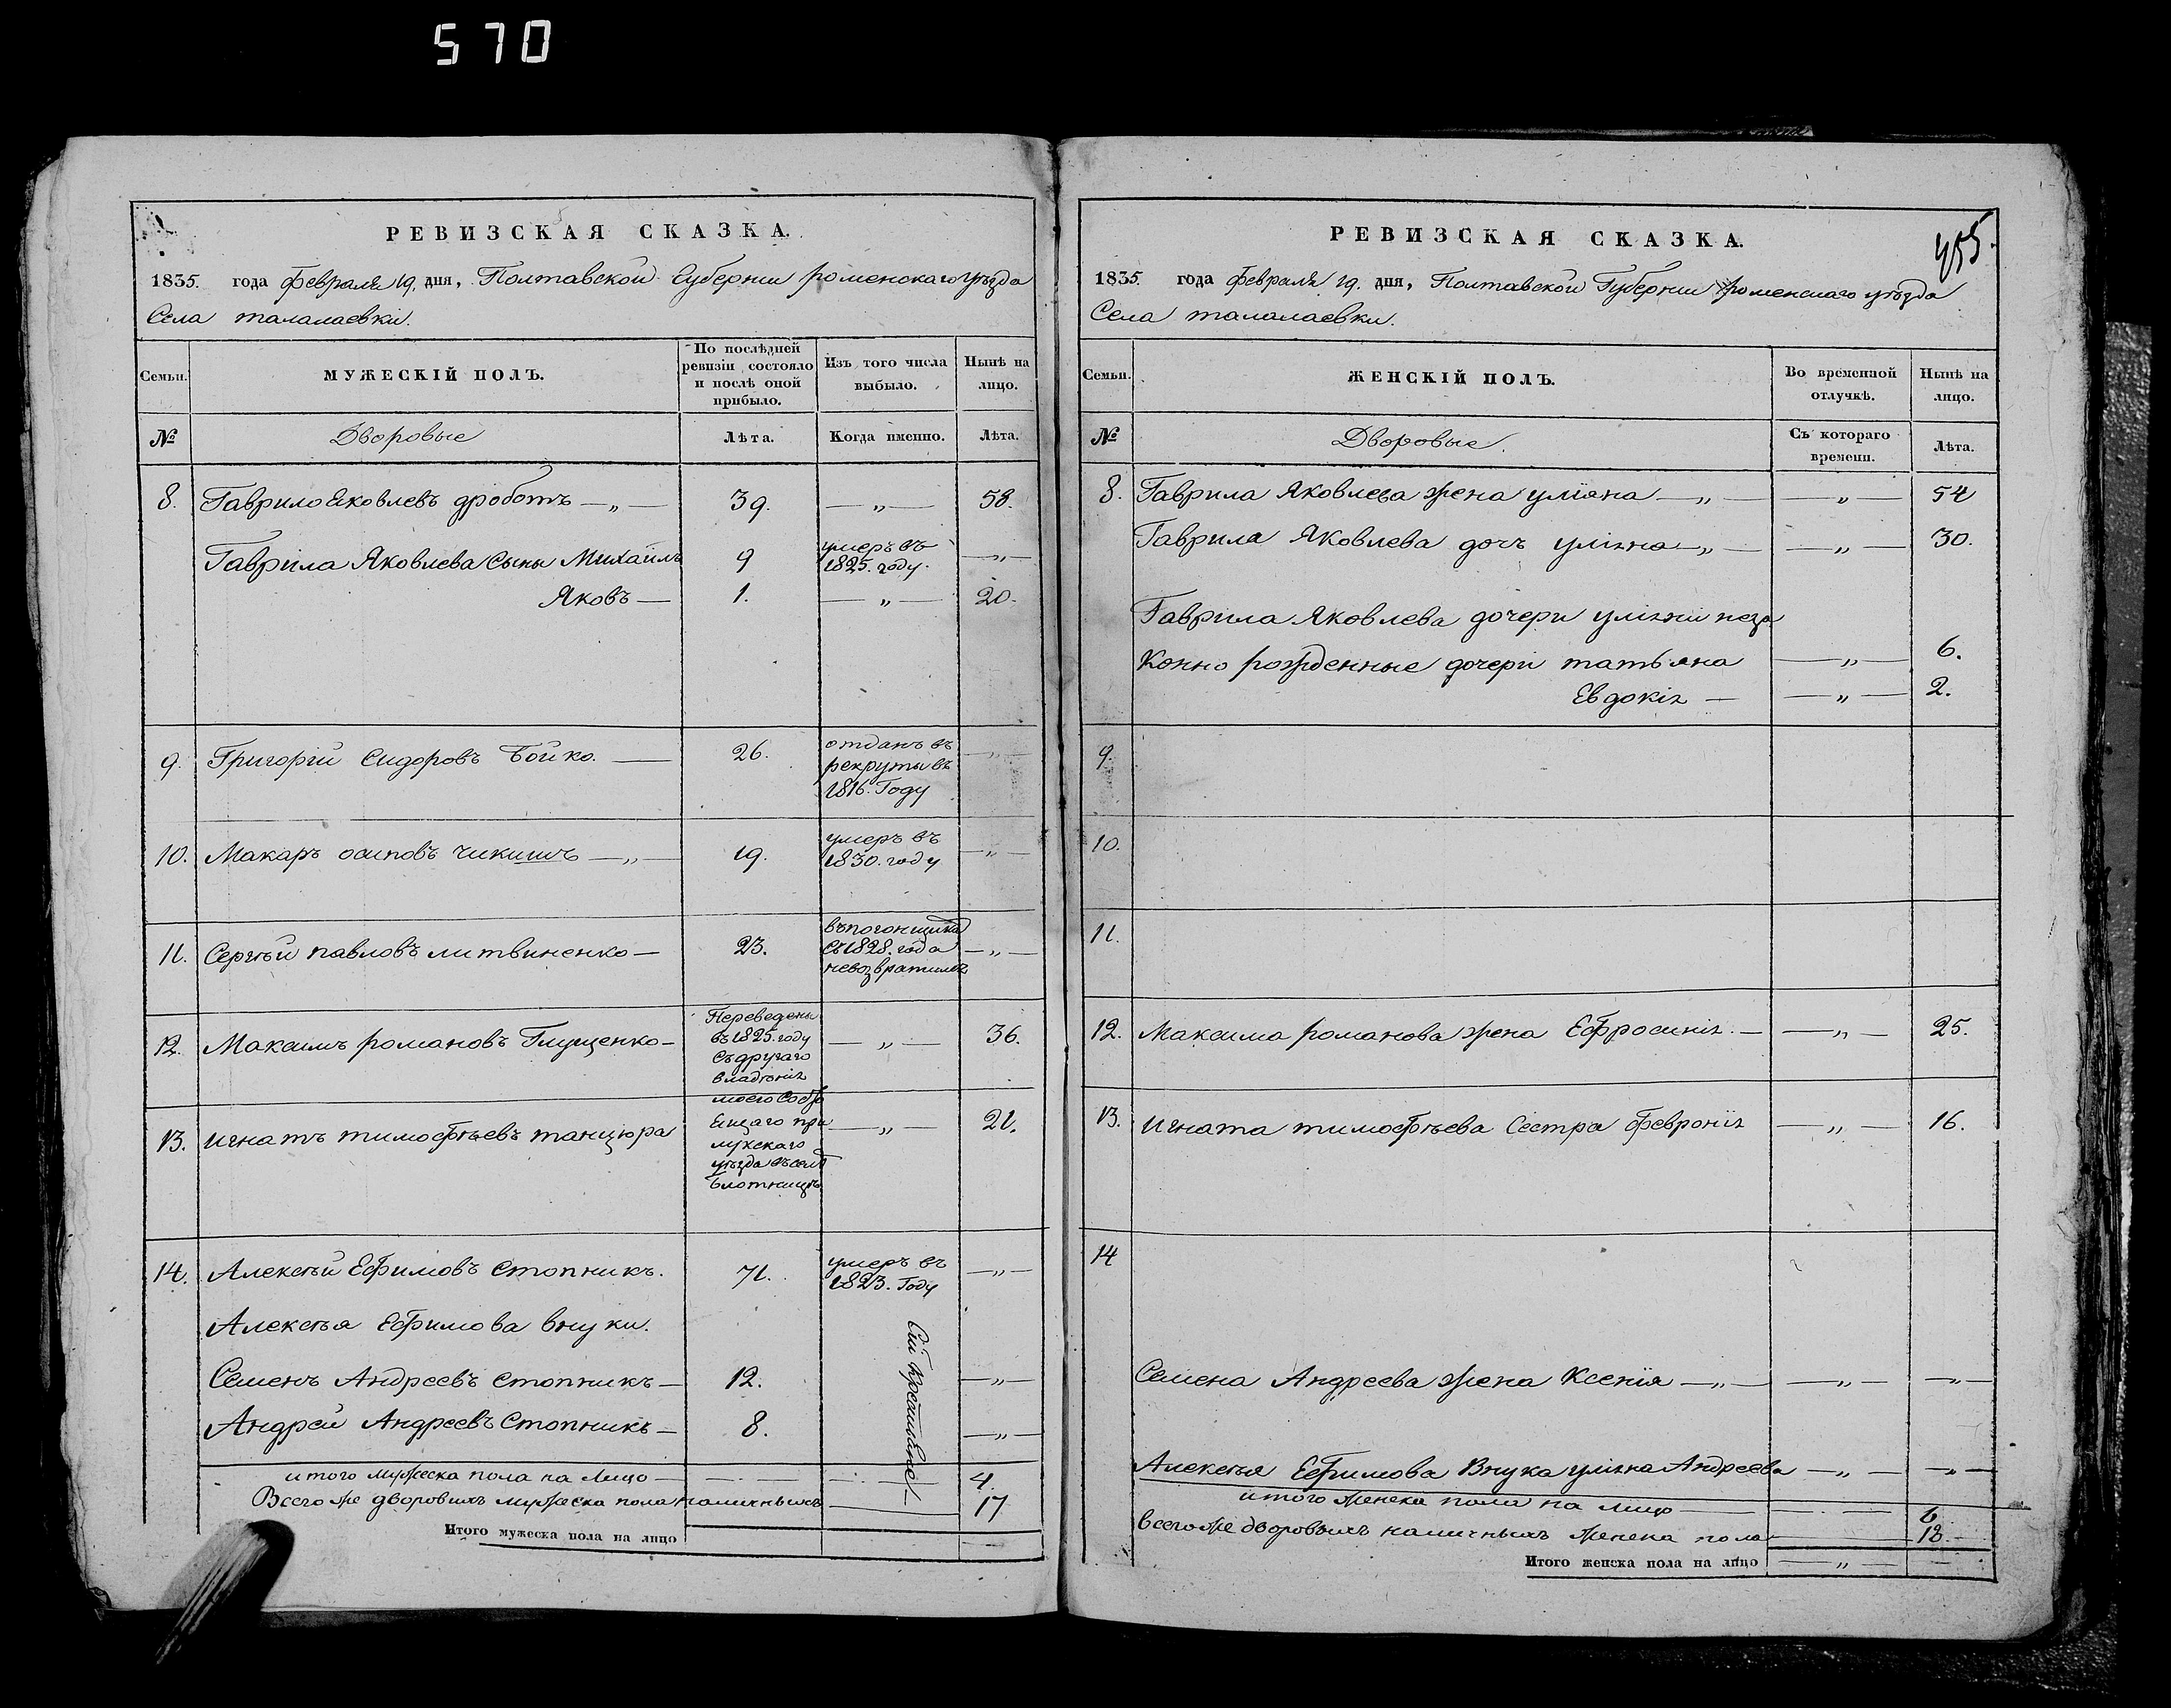 570
РЕВИЗСКАЯ СКАЗКА.
1835. года февраля 19. дня, Полтавской Губернии роменскаго уѣзда
Села талалаевки.
Семьи. МУЖЕСКІЙ ПОЛЪ. По послѣдней ревизіи состояло и послѣ оной прибыло. Изъ того числа выбыло. Нынѣ на лицо.
№ Дворовые Лѣта. Когда именно. Лѣта.
8. Гаврило Яковлевъ дроботъ — „ — 39. — „ — 58.
Гаврила Яковлева Сыны Михаилъ 9 умеръ въ 1825. году. — „ —
Яковъ — 1. — „ — 20.
9. Григорій Сидоровъ Бойко. — 26. отданъ въ рекруты въ 1816. Году — „ —
10. Макаръ осиповъ чикишъ — „ — 19. умеръ въ 1830. году — „ —
11. Сергѣй павловъ литвиненко — 23. въ погонщикахъ съ 1828. года невозвратился — „ —
12. Максимъ романовъ Глущенко — — „ — 36.
Переведены
въ 1825. году
съ другаго
владѣнія
моего Состо
13. игнатъ тимофѣевъ танцюра — „ — 21.
ящаго при
лукскаго
уѣзда въ селѣ
Блотницѣ.
14. Алексѣй Ефимовъ стопникъ. 71. умеръ въ 1823. Году — „ —
Алексѣя Ефимова внуки.
Семенъ Андреевъ стопникъ — 12. — „ —
Андрей Андреевъ Стопникъ — 8. — „ —
итого мужеска пола на лицо — 4.
Всего же дворовыхъ мужеска пола наличныхъ 17
Итого мужеска пола на лицо
455.
РЕВИЗСКАЯ СКАЗКА.
1835. года февраля 19. дня, Полтавской Губернии роменскаго уѣзда
Села талалаевки.
Семьи. ЖЕНСКІЙ ПОЛЪ. Во временной отлучкѣ. Нынѣ на лицо.
№ Дворовые. Съ котораго времени. Лѣта.
8. Гаврила Яковлева жена уліяна — „ — — „ — 54
Гаврила Яковлева дочь уліяна — „ — — „ — 30.
Гаврила Яковлева дочери уліяни неза
Конно рожденные дочери татьяна — „ — 6.
Евдокія — — „ — 2.
9.
10.
11.
12. Максима романова жена Ефросинія. — — „ — 25.
13. игната тимофѣева Сестра февронія — „ — 16.
14
Семена Андреева жена Ксенія — „ — — „ — — „ —
Алексѣя Ефимова Внука уліяна Андреева — „ — — „ —
итого женска пола на лицо 6
всего же дворовыхъ наличныхъ женска пола 18.
Итого женска пола на лицо — „ — —